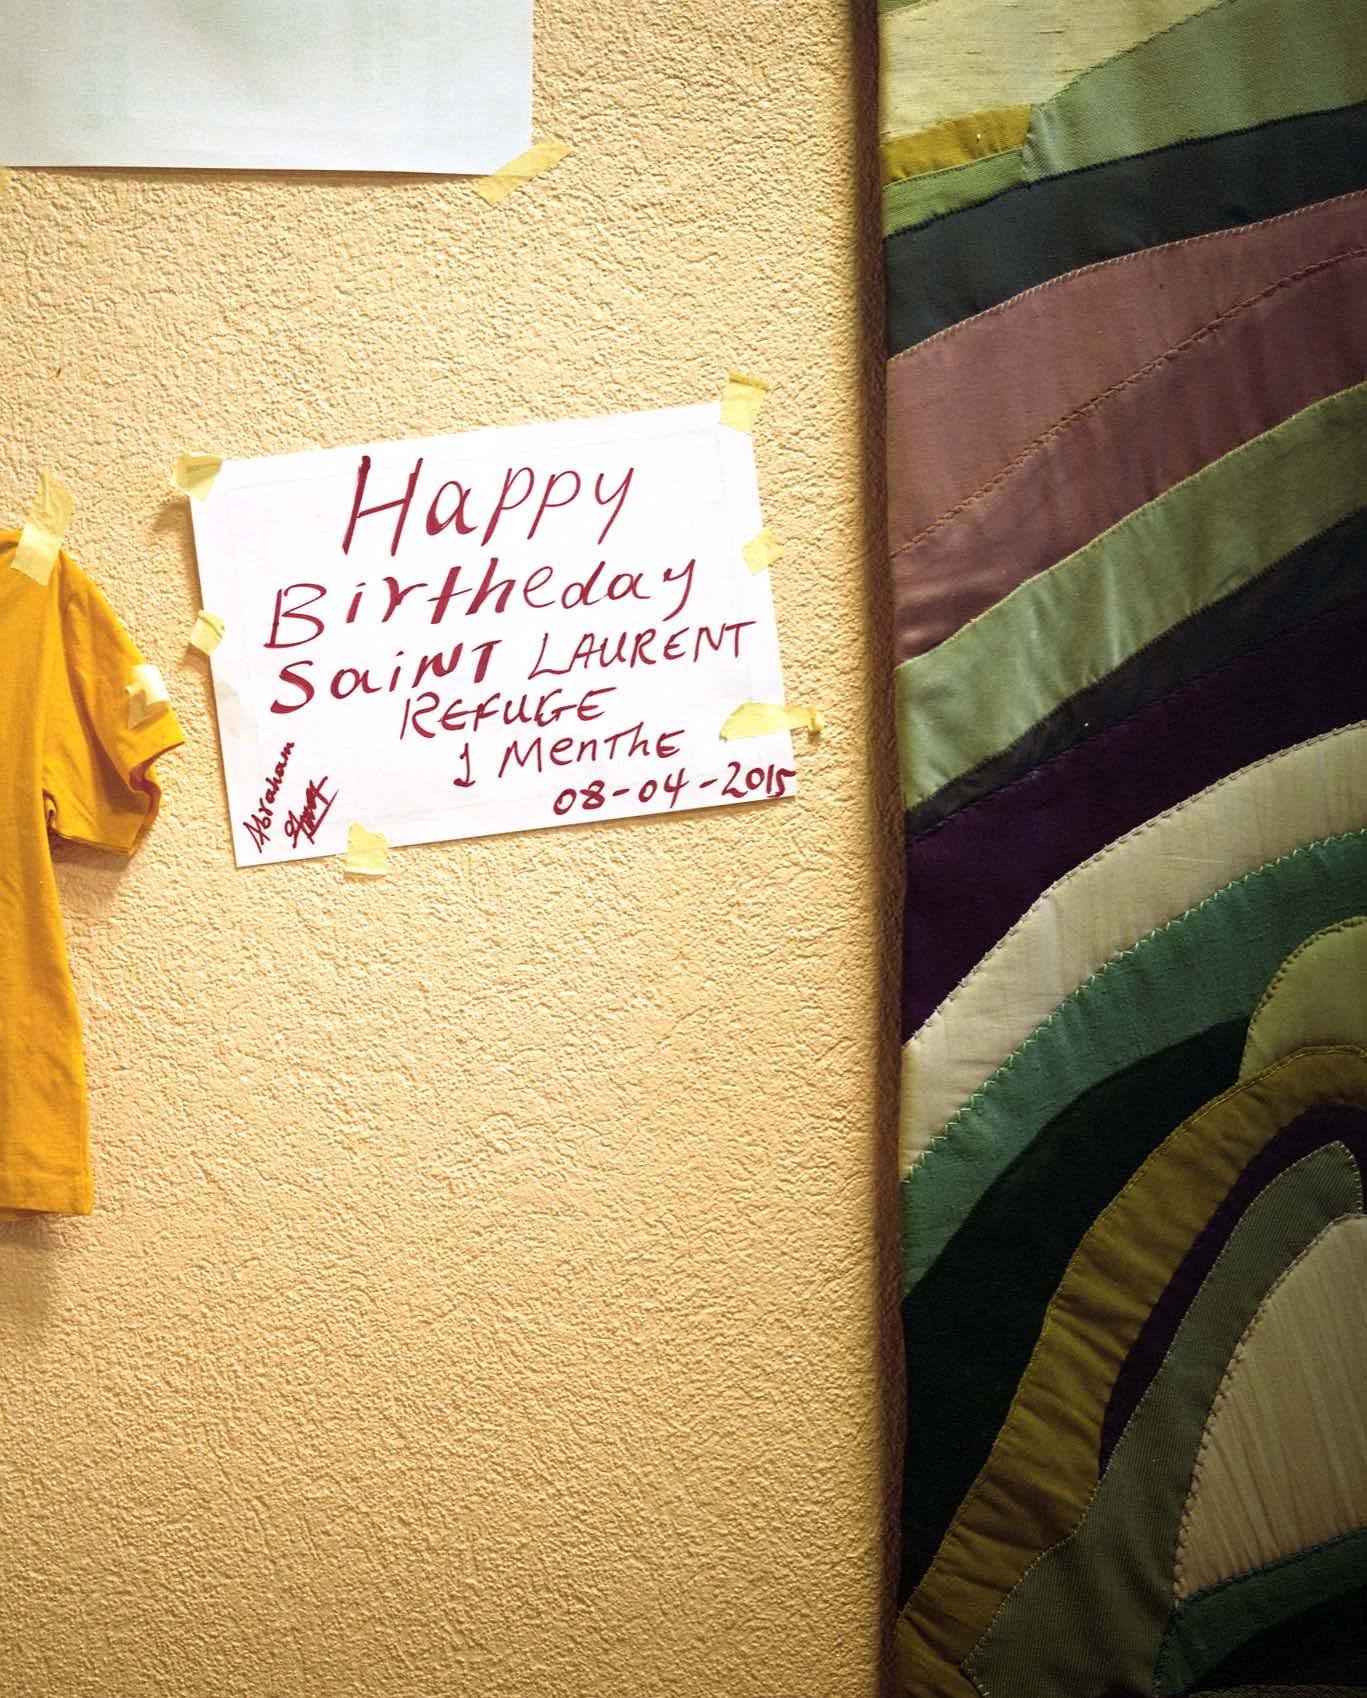 Happy
Birtheday
Saint LAURENT
REFUGE
1 MenThE
08-04-2015
Abraham